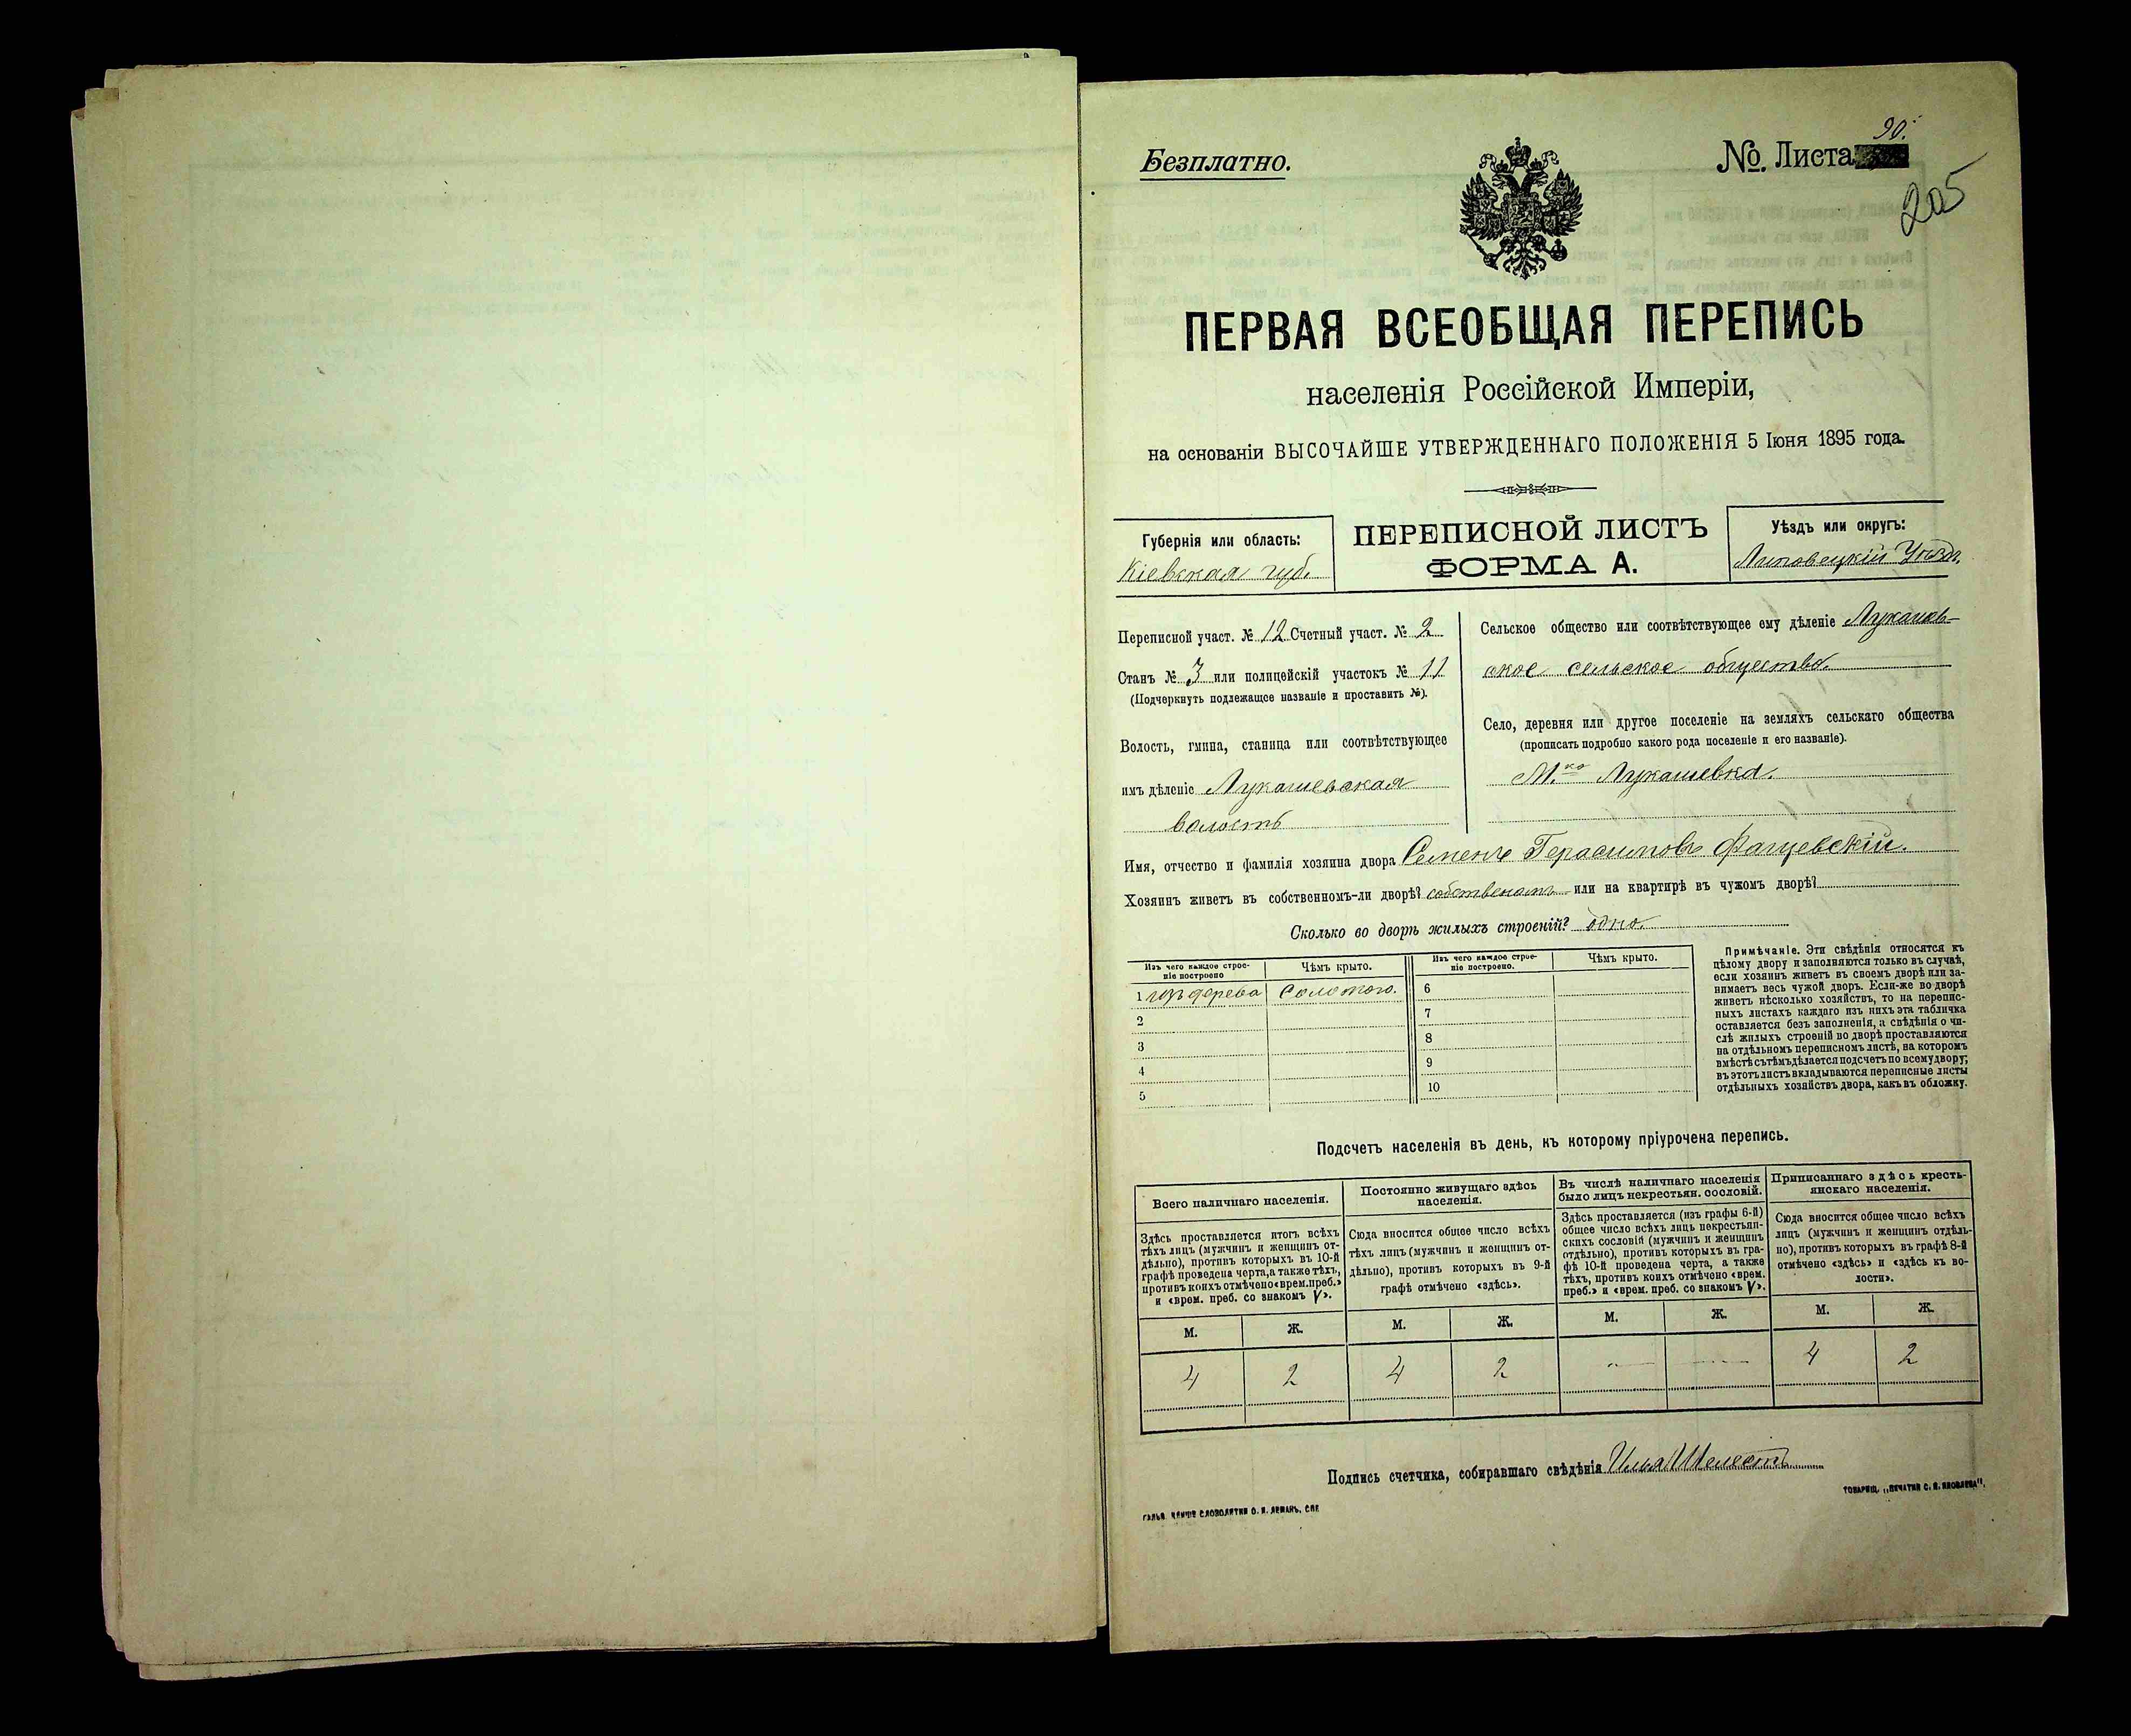 90.
Безплатно.
№ Листа
205
ПЕРВАЯ ВСЕОБЩАЯ ПЕРЕПИСЬ
населенія Россійской Имперіи,
на основаніи ВЫСОЧАЙШЕ УТВЕРЖДЕННАГО ПОЛОЖЕНІЯ 5 Іюня 1895 года.
Губернія или область:
Кіевская губ.
ПЕРЕПИСНОЙ ЛИСТЪ
ФОРМА А.
Уѣздъ или округъ:
Липовецкій Уѣздъ.
Переписной участ. № 12 Счетный участ. № 2
Станъ № 3 или полицейскій участокъ № 11
(Подчеркнуть подлежащее названіе и проставить №).
Волость, гмина, станица или соотвѣтствующее
имъ дѣленіе Лукашевская
волость
Сельское общество или соотвѣтствующее ему дѣленіе Лукашев-
ское сельское общество.
Село, деревня или другое поселеніе на земляхъ сельскаго общества
(прописать подробно какого рода поселеніе и его названіе).
М.ко Лукашевка.
Имя, отчество и фамилія хозяина двора Семенъ Герасимовъ Фащевскій.
Хозяинъ живетъ въ собственномъ-ли дворѣ? собственомъ или на квартирѣ въ чужомъ дворѣ?
Сколько во дворѣ жилыхъ строеній? одно.
Изъ чего каждое строе-
ніе построено
Чѣмъ крыто.
Изъ чего каждое строе-
ніе построено.
Чѣмъ крыто.
1 изъ дерева Соломою. 6
2 7
3 8
4 9
5 10
Примѣчаніе. Эти свѣдѣнія относятся къ
цѣлому двору и заполняются только въ случаѣ,
если хозяинъ живетъ въ своемъ дворѣ или за-
нимаетъ весь чужой дворъ. Если-же во дворѣ
живетъ нѣсколько хозяйствъ, то на перепис-
ныхъ листахъ каждаго изъ нихъ эта табличка
оставляется безъ заполненія, а свѣдѣнія о чи-
слѣ жилыхъ строеній во дворѣ проставляются
на отдѣльномъ переписномъ листѣ, на которомъ
вмѣстѣ съ тѣмъ дѣлается подсчетъ по всему двору;
въ этотъ листъ вкладываются переписные листы
отдѣльныхъ хозяйствъ двора, какъ въ обложку.
Подсчетъ населенія въ день, къ которому пріурочена перепись.
Всего наличнаго населенія.
Здѣсь проставляется итогъ всѣхъ
тѣхъ лицъ (мужчинъ и женщинъ от-
дѣльно), противъ которыхъ въ 10-й
графѣ проведена черта, а также тѣхъ,
противъ коихъ отмѣчено «врем. преб.»
и «врем. преб. со знакомъ V».
Постоянно живущаго здѣсь
населенія.
Сюда вносится общее число всѣхъ
тѣхъ лицъ (мужчинъ и женщинъ от-
дѣльно), противъ которыхъ въ 9-й
графѣ отмѣчено «здѣсь».
Въ числѣ наличнаго населенія
было лицъ некрестьян. сословій.
Здѣсь проставляется (изъ графы 6-й)
общее число всѣхъ лицъ некрестьян-
скихъ сословій (мужчинъ и женщинъ
отдѣльно), противъ которыхъ въ гра-
фѣ 10-й проведена черта, а также
тѣхъ, противъ коихъ отмѣчено «врем.
преб.» и «врем. преб. со знакомъ V».
Приписаннаго здѣсь кресть-
янскаго населенія.
Сюда вносится общее число всѣхъ
лицъ (мужчинъ и женщинъ отдѣль-
но), противъ которыхъ въ графѣ 8-й
отмѣчено «здѣсь» и «здѣсь къ во-
лости».
М. Ж. М. Ж. М. Ж. М. Ж.
4 2 4 2 — — 4 2
Подпись счетчика, собиравшаго свѣдѣнія Илья Шелестъ
ГАЛЬВ. КЛИШЕ СЛОВОЛИТНИ О. И. ЛЕМАНЪ, СПБ
ТОВАРИЩ. „ПЕЧАТНЯ С. П. ЯКОВЛЕВА“.